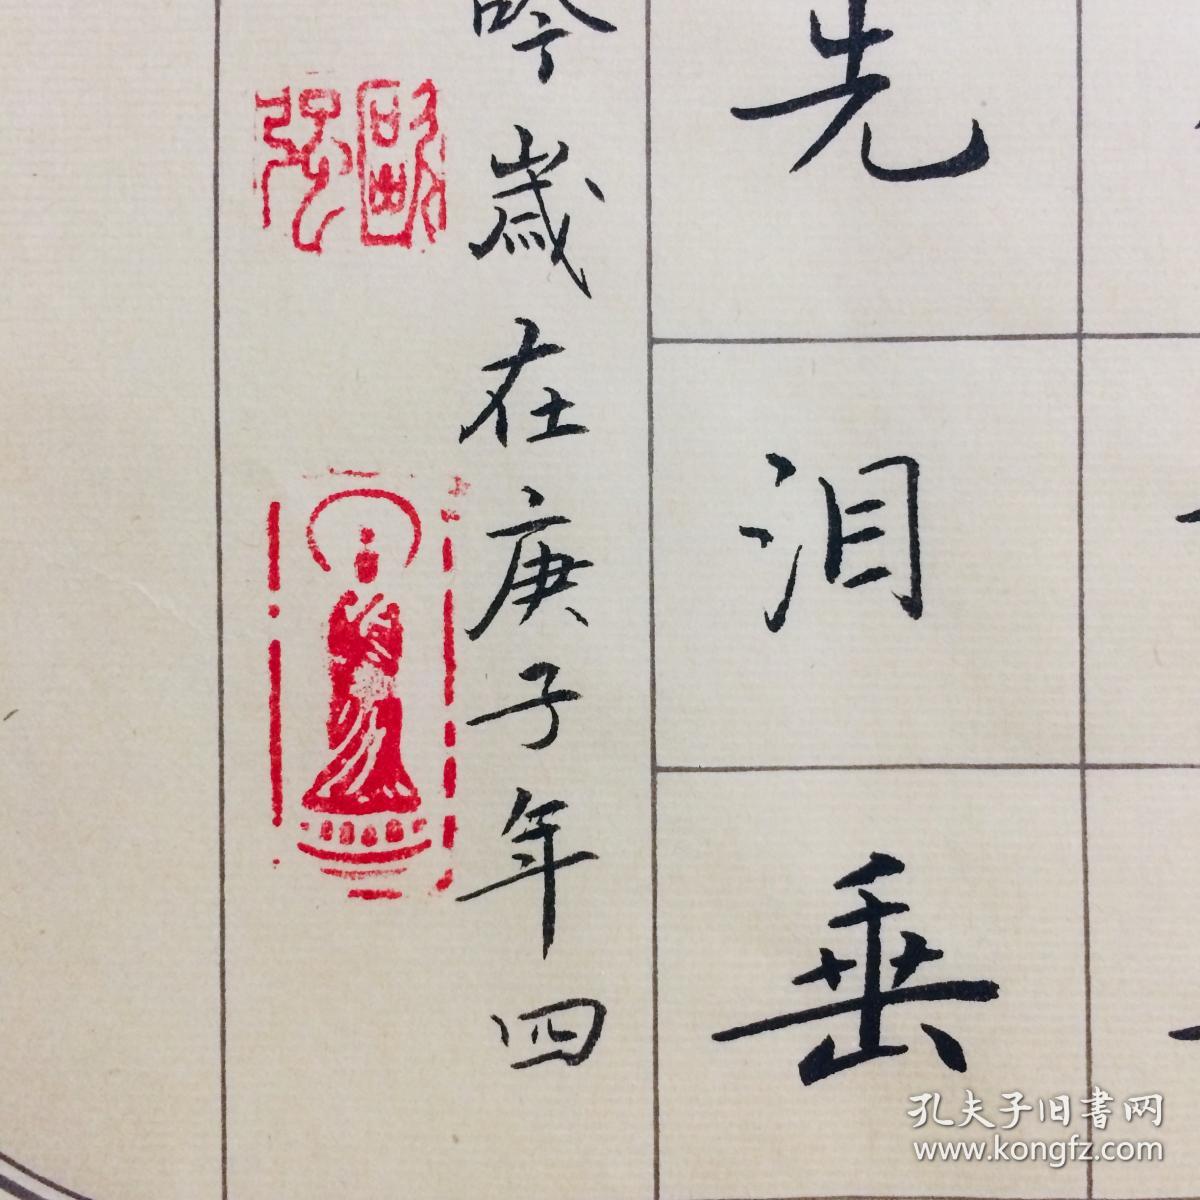 先泪垂
吟歲在庚子年四
孔夫子旧書网
www.kongfz.com